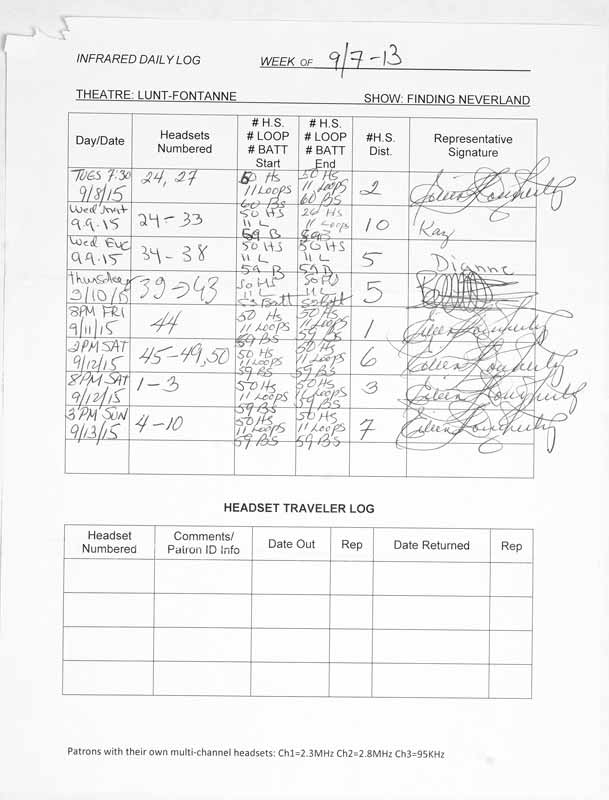 INFRARED DAILY LOG WEEK OF 9/7-13
THEATRE: LUNT-FONTANNE SHOW: FINDING NEVERLAND
Day/Date Headsets Numbered # H.S. # LOOP # BATT Start # H.S. # LOOP # BATT End #H.S. Dist. Representative Signature
TUES 7:30 9/8/15 24, 27 50 HS 11 Loops 60 Bs 50 Hs 11 Loops 60 Bs 2 Eileen Dougherty
Wed 9.9.15 24-33 50 HS 11 L 59 B HS 11 Loops 10 Kay
Wed Eve 9.9.15 34-38 50 HS 11 L 59 B 50 HS 11 L 59 B 5 Dianne
Thursday 9/10/15 39→43 50 HS 11 L 53 Batt 50 HS 11 L 5
8PM FRI 9/11/15 44 50 Hs 11 Loops 59 Bs 50 Hs 11 Loops 59 Bs 1 Eileen Dougherty
2PM SAT 9/12/15 45-49,50 50 HS 11 Loops 59 Bs 50 Hs 11 Loops 59 Bs 6 Eileen Dougherty
8PM SAT 9/12/15 1-3 50 Hs 11 Loops 59 Bs 50 Hs 11 Loops 59 Bs 3 Eileen Dougherty
3PM SUN 9/13/15 4-10 50 Hs 11 Loops 59 Bs 50 Hs 11 Loops 59 Bs 7 Eileen Dougherty
HEADSET TRAVELER LOG
Headset Numbered Comments/ Patron ID Info Date Out Rep Date Returned Rep
Patrons with their own multi-channel headsets: Ch1=2.3MHz Ch2=2.8MHz Ch3=95KHz